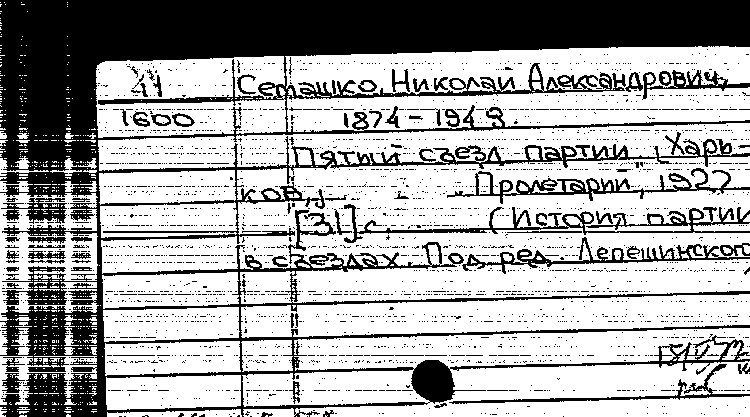 41 Семашко, Николай Александрович,
1600 1874-1949.
Пятый съезд партии. [Харь-
ков,] "Пролетарий", 1927
[31] с. (История партии
в съездах. Под ред. Лепешинского